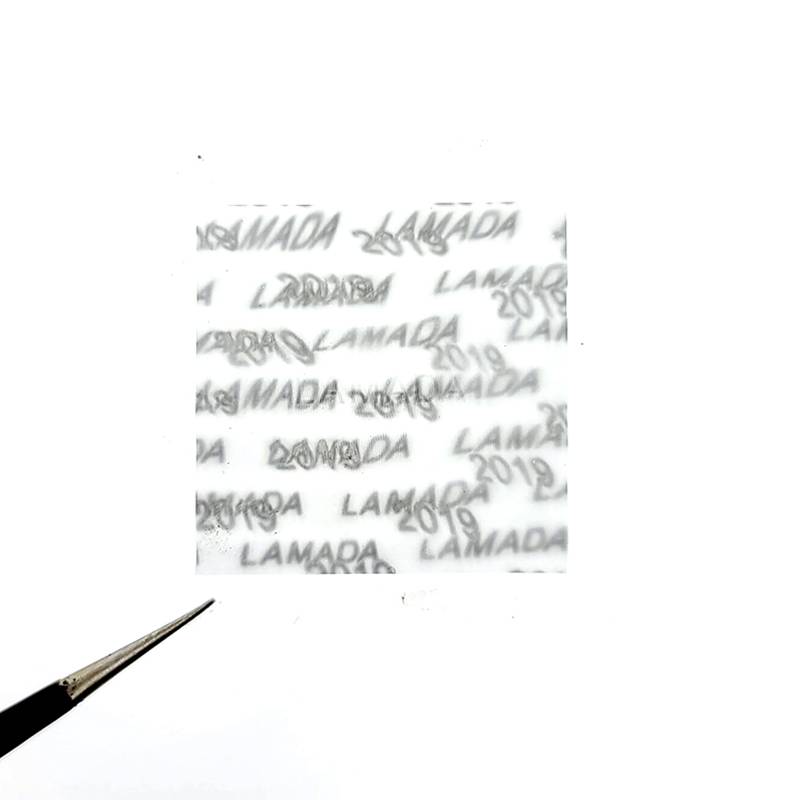 2019 LAMADA 2019 LAMADA
LAMADA 2019 LAMADA
2019
2019 LAMADA LAMADA
2019
2019 LAMADA 2019 LAMADA
LAMADA 2019 LAMADA
2019
LAMADA LAMADA
2019 2019
LAMADA LAMADA
2019